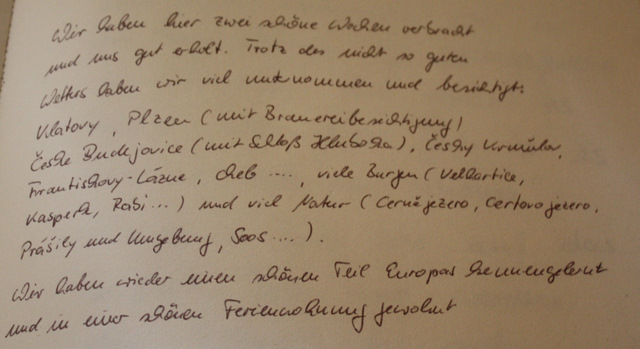 Wir haben hier zwei schöne Wochen verbracht
und uns gut erholt. Trotz des nicht so guten
Wetters haben wir viel unternommen und besichtigt:
Klatovy, Plzen (mit Brauereibesichtigung)
České Budejovice (mit Schloß Hluboka), Český Krumlov,
Frantiskovy-Lázne, Cheb ...., viele Burgen (Velhartice,
Kasperk, Rabi ...) und viel Natur (Cerné jezero, Certovo jezero,
Prášily und Umgebung, Soos ....).
Wir haben wieder einen schönen Teil Europas kennengelernt
und in einer schönen Ferienwohnung gewohnt